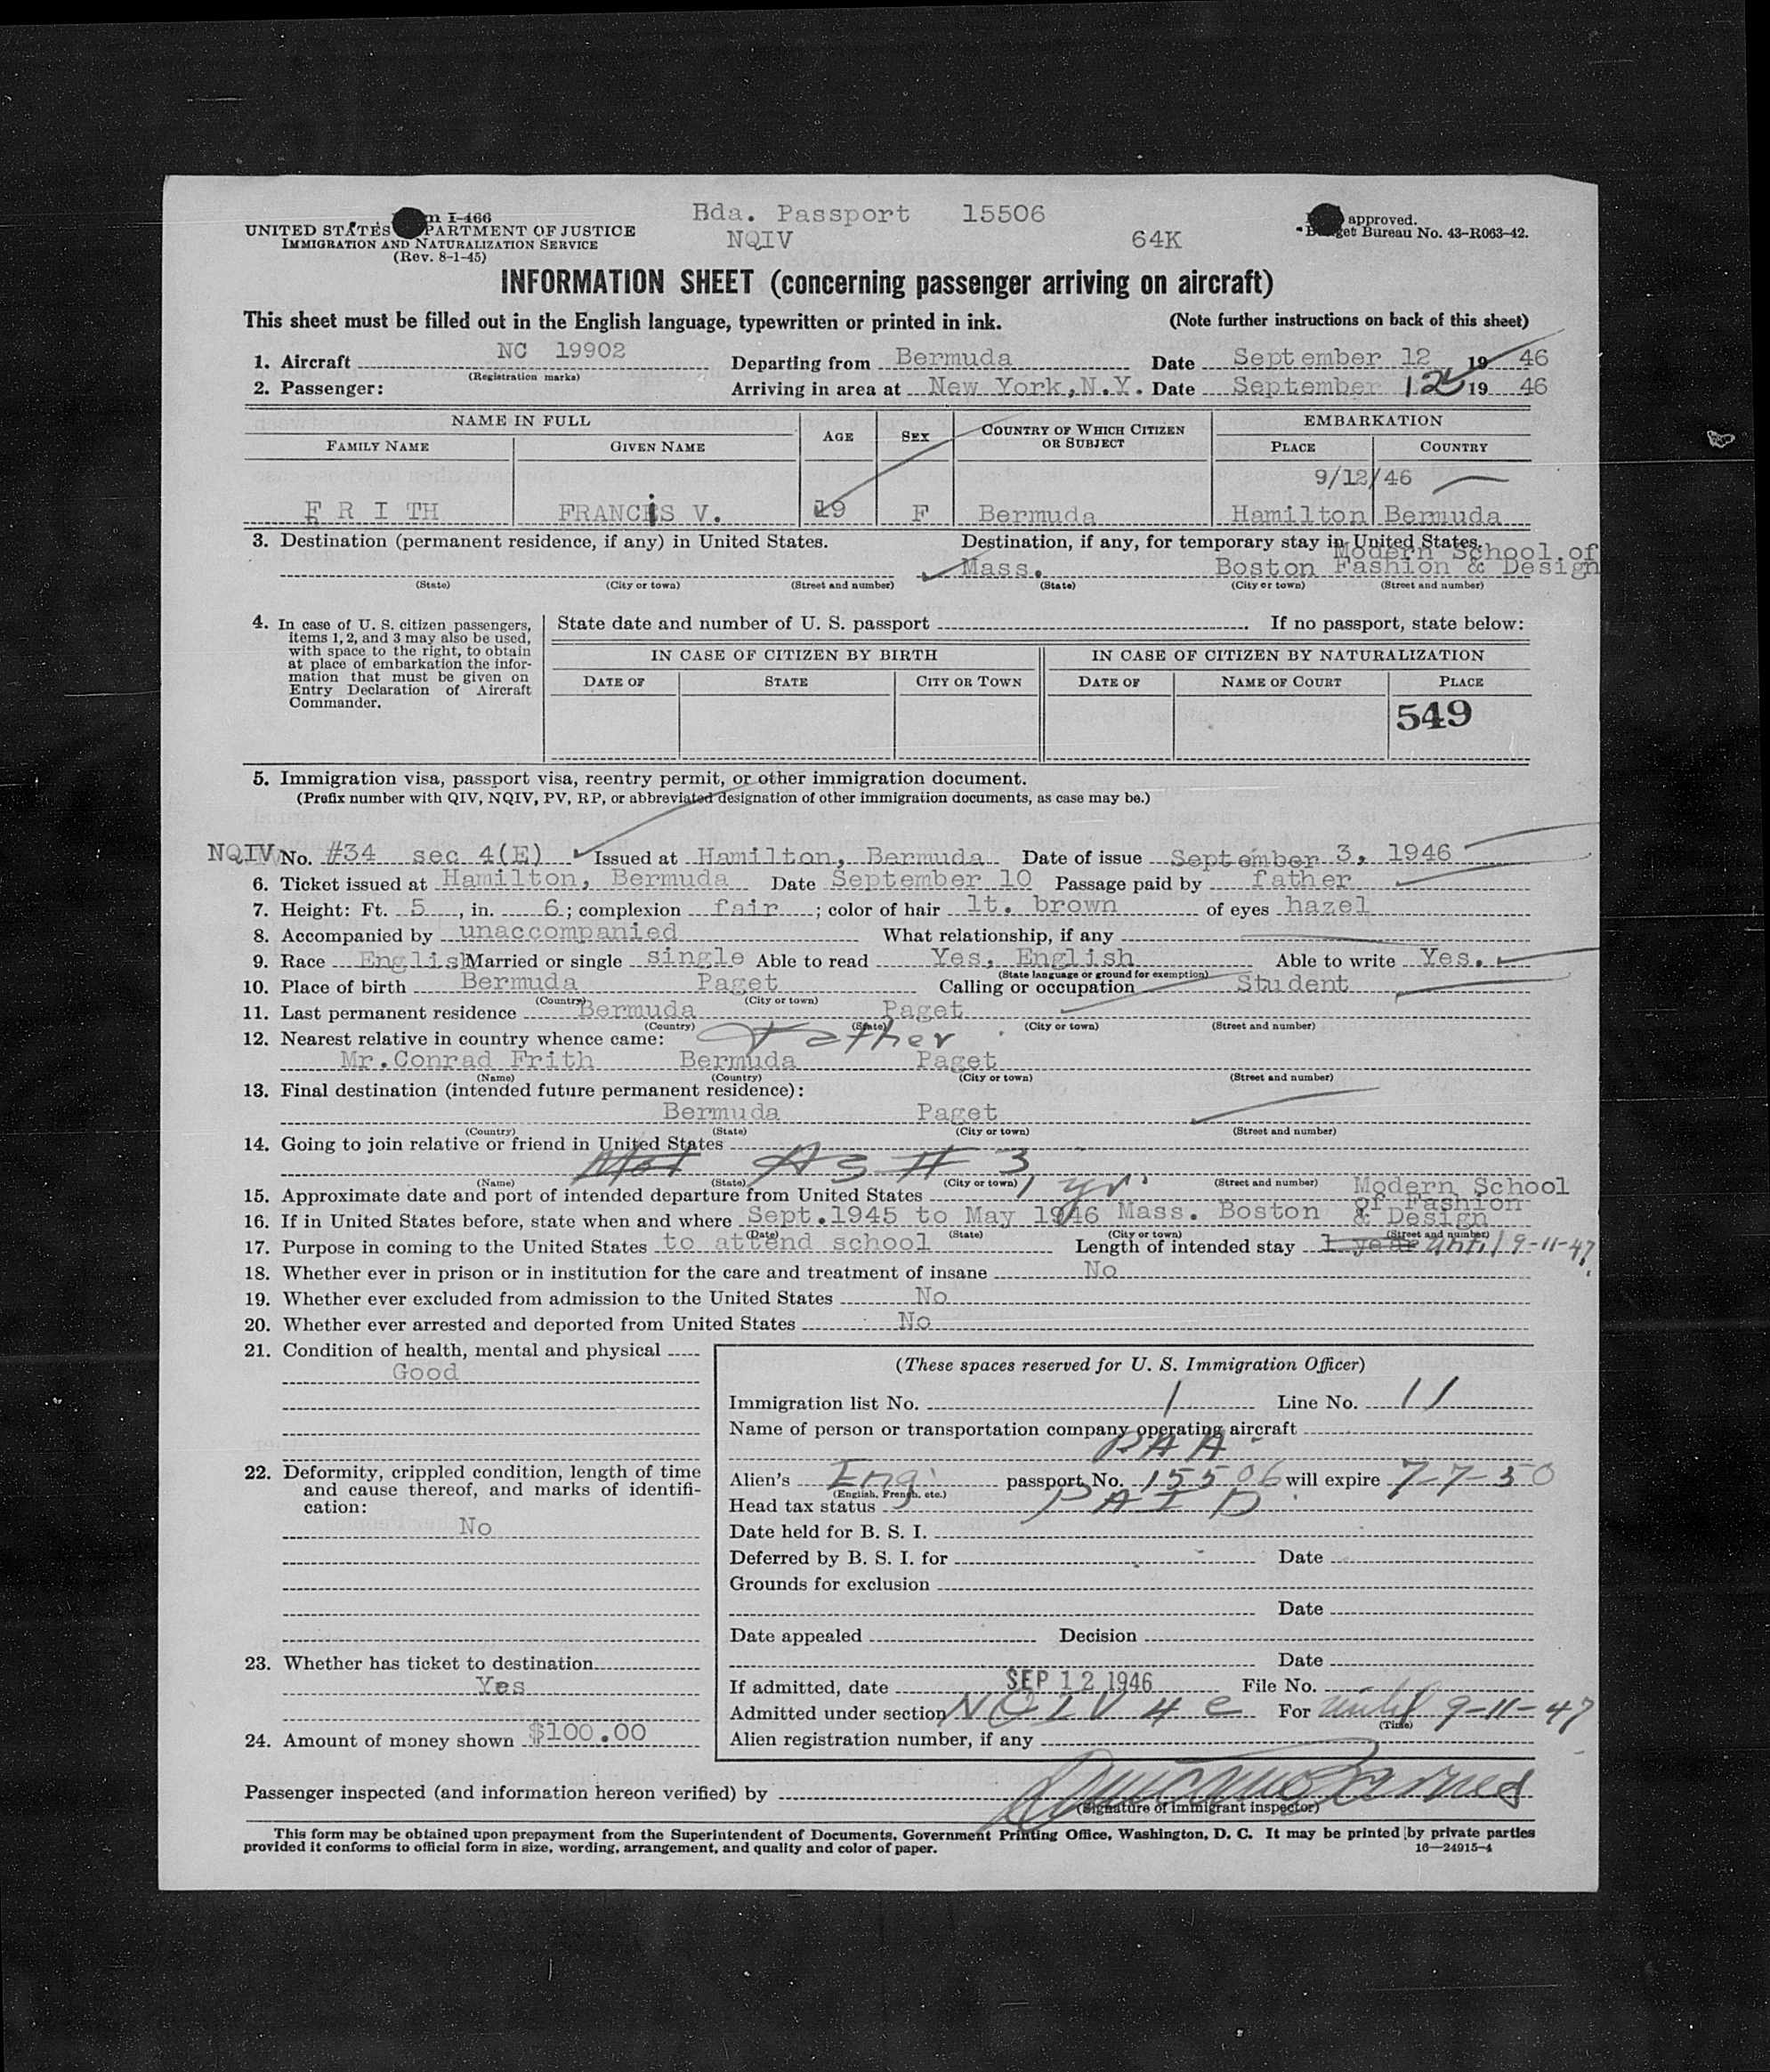 Bda. Passport 15506
I-466
UNITED STATES DEPARTMENT OF JUSTICE
IMMIGRATION AND NATURALIZATION SERVICE
(Rev. 8-1-45)
NQIV 64K
approved.
Budget Bureau No. 43-R063-42.
INFORMATION SHEET (concerning passenger arriving on aircraft)
This sheet must be filled out in the English language, typewritten or printed in ink. (Note further instructions on back of this sheet)
1. Aircraft NC 19902 Departing from Bermuda Date September 12 19 46
(Registration marks)
2. Passenger: Arriving in area at New York,N.Y. Date September 12 19 46
NAME IN FULL AGE SEX COUNTRY OF WHICH CITIZEN OR SUBJECT EMBARKATION
FAMILY NAME GIVEN NAME PLACE COUNTRY
9/12/46
F R I TH FRANCiS V. 19 F Bermuda Hamilton Bermuda
3. Destination (permanent residence, if any) in United States. Destination, if any, for temporary stay in United States.
Modern School of
Mass. Boston Fashion & Design
(State) (City or town) (Street and number) (State) (City or town) (Street and number)
4. In case of U. S. citizen passengers,
items 1, 2, and 3 may also be used,
with space to the right, to obtain
at place of embarkation the infor-
mation that must be given on
Entry Declaration of Aircraft
Commander.
State date and number of U. S. passport If no passport, state below:
IN CASE OF CITIZEN BY BIRTH IN CASE OF CITIZEN BY NATURALIZATION
DATE OF STATE CITY OR TOWN DATE OF NAME OF COURT PLACE
549
5. Immigration visa, passport visa, reentry permit, or other immigration document.
(Prefix number with QIV, NQIV, PV, RP, or abbreviated designation of other immigration documents, as case may be.)
NQIV No. #34 sec 4(E) Issued at Hamilton, Bermuda Date of issue September 3, 1946
6. Ticket issued at Hamilton, Bermuda Date September 10 Passage paid by father
7. Height: Ft. 5, in. 6; complexion fair; color of hair lt. brown of eyes hazel
8. Accompanied by unaccompanied What relationship, if any
9. Race English Married or single single Able to read Yes, English Able to write Yes.
(State language or ground for exemption)
10. Place of birth Bermuda Paget Calling or occupation Student
(Country) (City or town)
11. Last permanent residence Bermuda Paget
(Country) (State) (City or town) (Street and number)
12. Nearest relative in country whence came: Father
Mr.Conrad Frith Bermuda Paget
(Name) (Country) (City or town) (Street and number)
13. Final destination (intended future permanent residence):
Bermuda Paget
(Country) (State) (City or town) (Street and number)
14. Going to join relative or friend in United States
As # 3
(Name) (State) (City or town) (Street and number)
15. Approximate date and port of intended departure from United States 1 yr.
Modern School
of Fashion
& Design
16. If in United States before, state when and where Sept.1945 to May 1946 Mass. Boston
(Date) (State) (City or town) (Street and number)
17. Purpose in coming to the United States to attend school Length of intended stay 1 year until 9-11-47
18. Whether ever in prison or in institution for the care and treatment of insane No
19. Whether ever excluded from admission to the United States No
20. Whether ever arrested and deported from United States No
21. Condition of health, mental and physical
Good
22. Deformity, crippled condition, length of time
and cause thereof, and marks of identifi-
cation:
No
23. Whether has ticket to destination
Yes
24. Amount of money shown $100.00
(These spaces reserved for U. S. Immigration Officer)
Immigration list No. 1 Line No. 11
Name of person or transportation company operating aircraft
PAA
Alien's Eng. passport No. 15506 will expire 7-7-50
(English, French, etc.)
Head tax status PAID
Date held for B. S. I.
Deferred by B. S. I. for Date
Grounds for exclusion
Date
Date appealed Decision
Date
If admitted, date SEP 12 1946 File No.
Admitted under section NQIV 4 e For until 9-11-47
(Time)
Alien registration number, if any
Passenger inspected (and information hereon verified) by
(Signature of immigrant inspector)
This form may be obtained upon prepayment from the Superintendent of Documents, Government Printing Office, Washington, D. C. It may be printed by private parties
provided it conforms to official form in size, wording, arrangement, and quality and color of paper. 16—24915-4